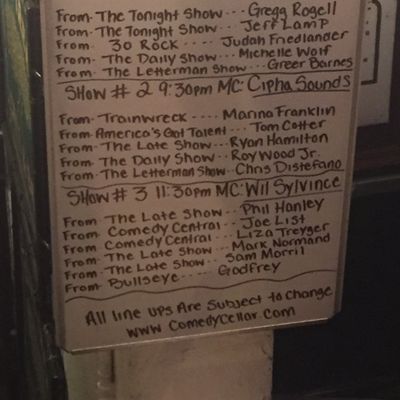 From-The Tonight Show---Gregg Rogell
From-The Tonight Show---Jeff Lamp
From 30 Rock-----Judah Friedlander
From-The Daily Show--Michelle Wolf
From-The Letterman Show--Greer Barnes
SHOW # 2 9:30pm MC: Cipha Sounds
From-Trainwreck-----Marina Franklin
From-America's Got Talent--Tom Cotter
From-The Late Show--Ryan Hamilton
From-The Daily Show--Roy Wood Jr.
From-The Letterman Show-Chris Distefano
SHOW # 3 11:30pm MC: Wil Sylvince
From-The Late Show---Phil Hanley
From-Comedy Central---Joe List
From-Comedy Central---Liza Treyger
From-The Late Show---Mark Normand
From-The Late Show---Sam Morril
From-Bullseye-----Godfrey
All line ups Are Subject to Change
www.ComedyCellar.com